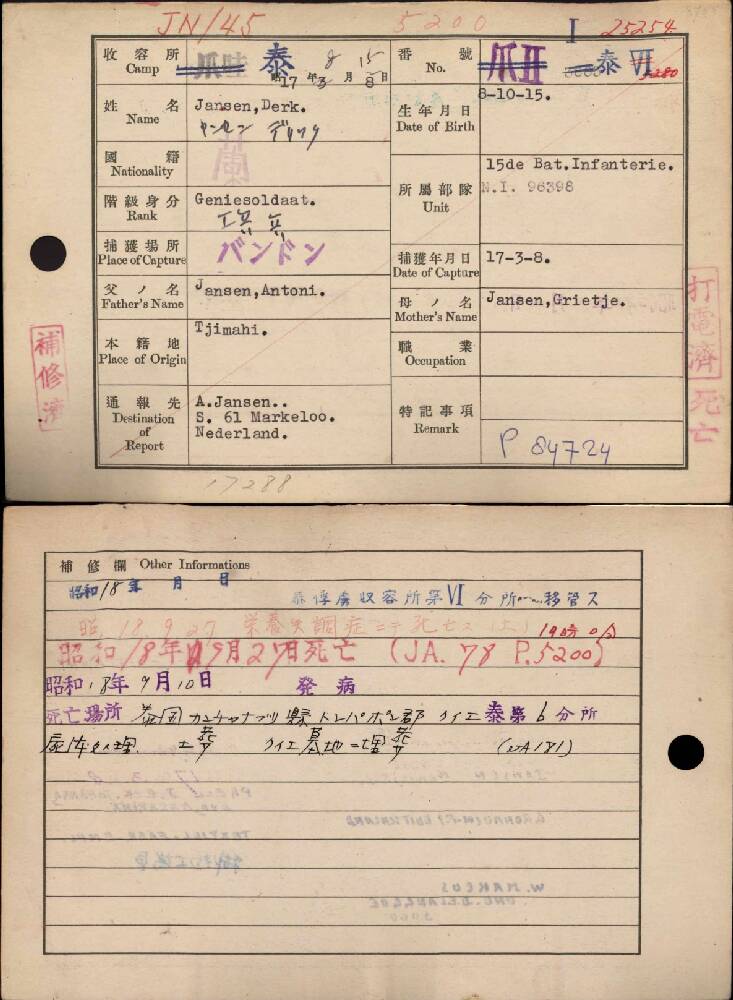 JN/45 5200 I 25254
收容所 Camp 爪哇 泰 昭17年8月15日
番號 No. 爪II 泰VI 5280
姓名 Name Jansen,Derk.
ヤンセン デルク
蘭
生年月日 Date of Birth 8-10-15.
國籍 Nationality
階級身分 Rank Geniesoldaat.
工兵 兵
所屬部隊 Unit 15de Bat.Infanterie.
N.I. 96398
捕獲場所 Place of Capture バンドン
捕獲年月日 Date of Capture 17-3-8.
父ノ名 Father's Name Jansen,Antoni.
母ノ名 Mother's Name Jansen,Grietje.
本籍地 Place of Origin Tjimahi.
職業 Occupation
通報先 Destination of Report A.Jansen..
S. 61 Markeloo.
Nederland.
特記事項 Remark P 84724
補修濟
打電濟
死亡
17288
補修欄 Other Informations
昭和18年 月 日 泰俘虜収容所第VI分所 移管ス
昭 18 9 27 栄養失調症ニテ死亡ス 19時0分
昭和18年9月27日死亡 (JA. 78 P.5200)
昭和18年9月10日 発病
死亡場所 泰国カンチャナブリ県トンパポン郡 クイエ 泰第6分所
屍体処理 土葬 クイエ墓地ニ埋葬 (JA181)